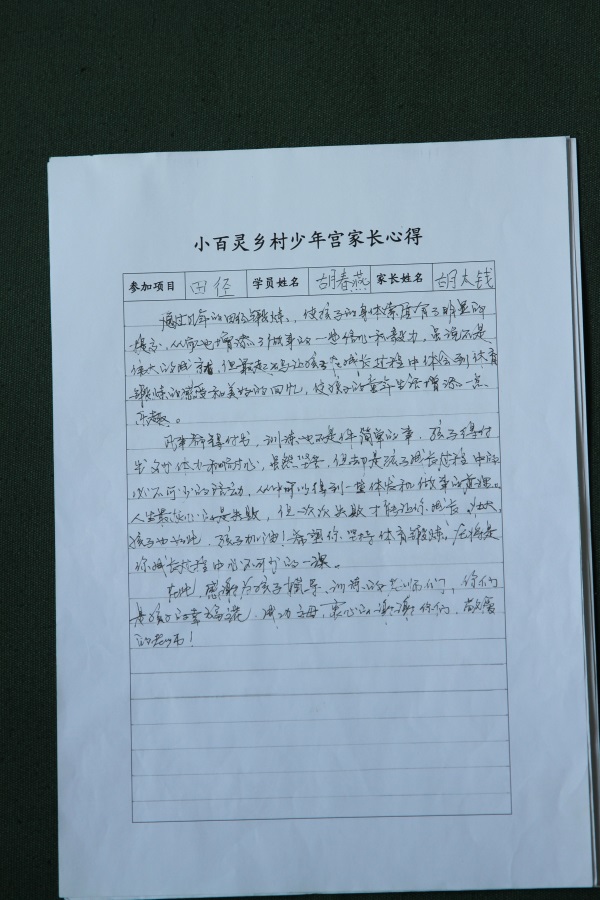 小百灵乡村少年宫家长心得
参加项目 田径 学员姓名 胡春燕 家长姓名 胡大钱
通过几年的田径锻炼，使孩子的身体素质有了明显的
提高，从而也增添了做事的一些信心和毅力，虽说不是
伟大的成就者，但最起码让孩子在成长过程中体会到体育
锻炼的感受和美好的回忆，使孩子的童年生活增添一点
乐趣。
凡事都得付出，训练也不是件简单的事，孩子得付
出交付体力和耐心，虽然坚苦，但却是孩子成长过程中
必不可少的活动，从中可以得到一些体会和做事的真理。
人生贵在的是失败，但一次次失败才能让你成长、壮大，
孩子也如此，孩子加油！希望你坚持体育锻炼。它将是
你成长过程中必不可少的一课。
在此，感谢为孩子指导、训练的老师们，你们
是孩子的幸福港、成功之母，衷心的谢谢你们，敬爱
的老师！